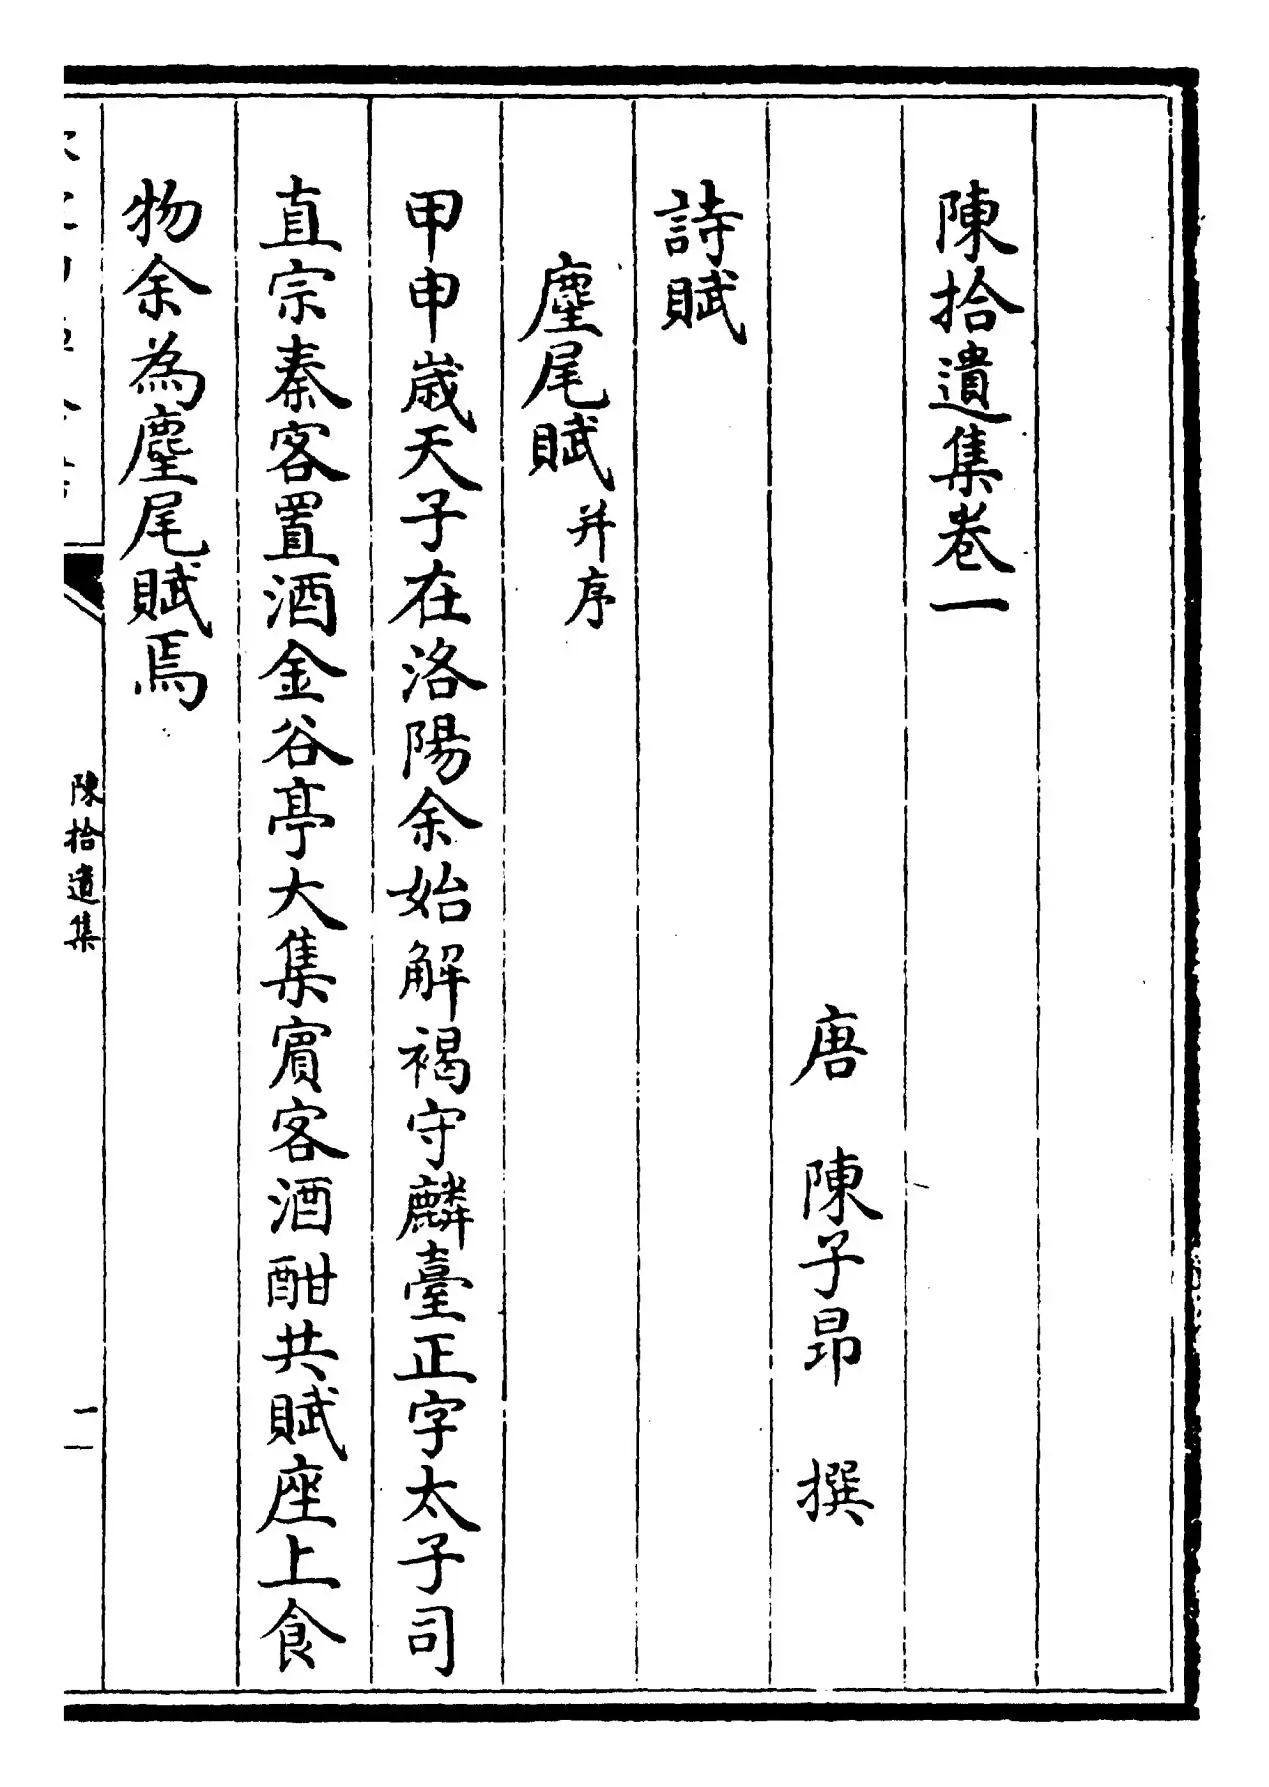 陳拾遺集卷一
唐 陳子昂 撰
詩賦
麈尾賦 并序
甲申歲天子在洛陽余始解褐守麟臺正字太子司
直宗秦客置酒金谷亭大集賓客酒酣共賦座上食
物余為麈尾賦焉
陳拾遺集
一